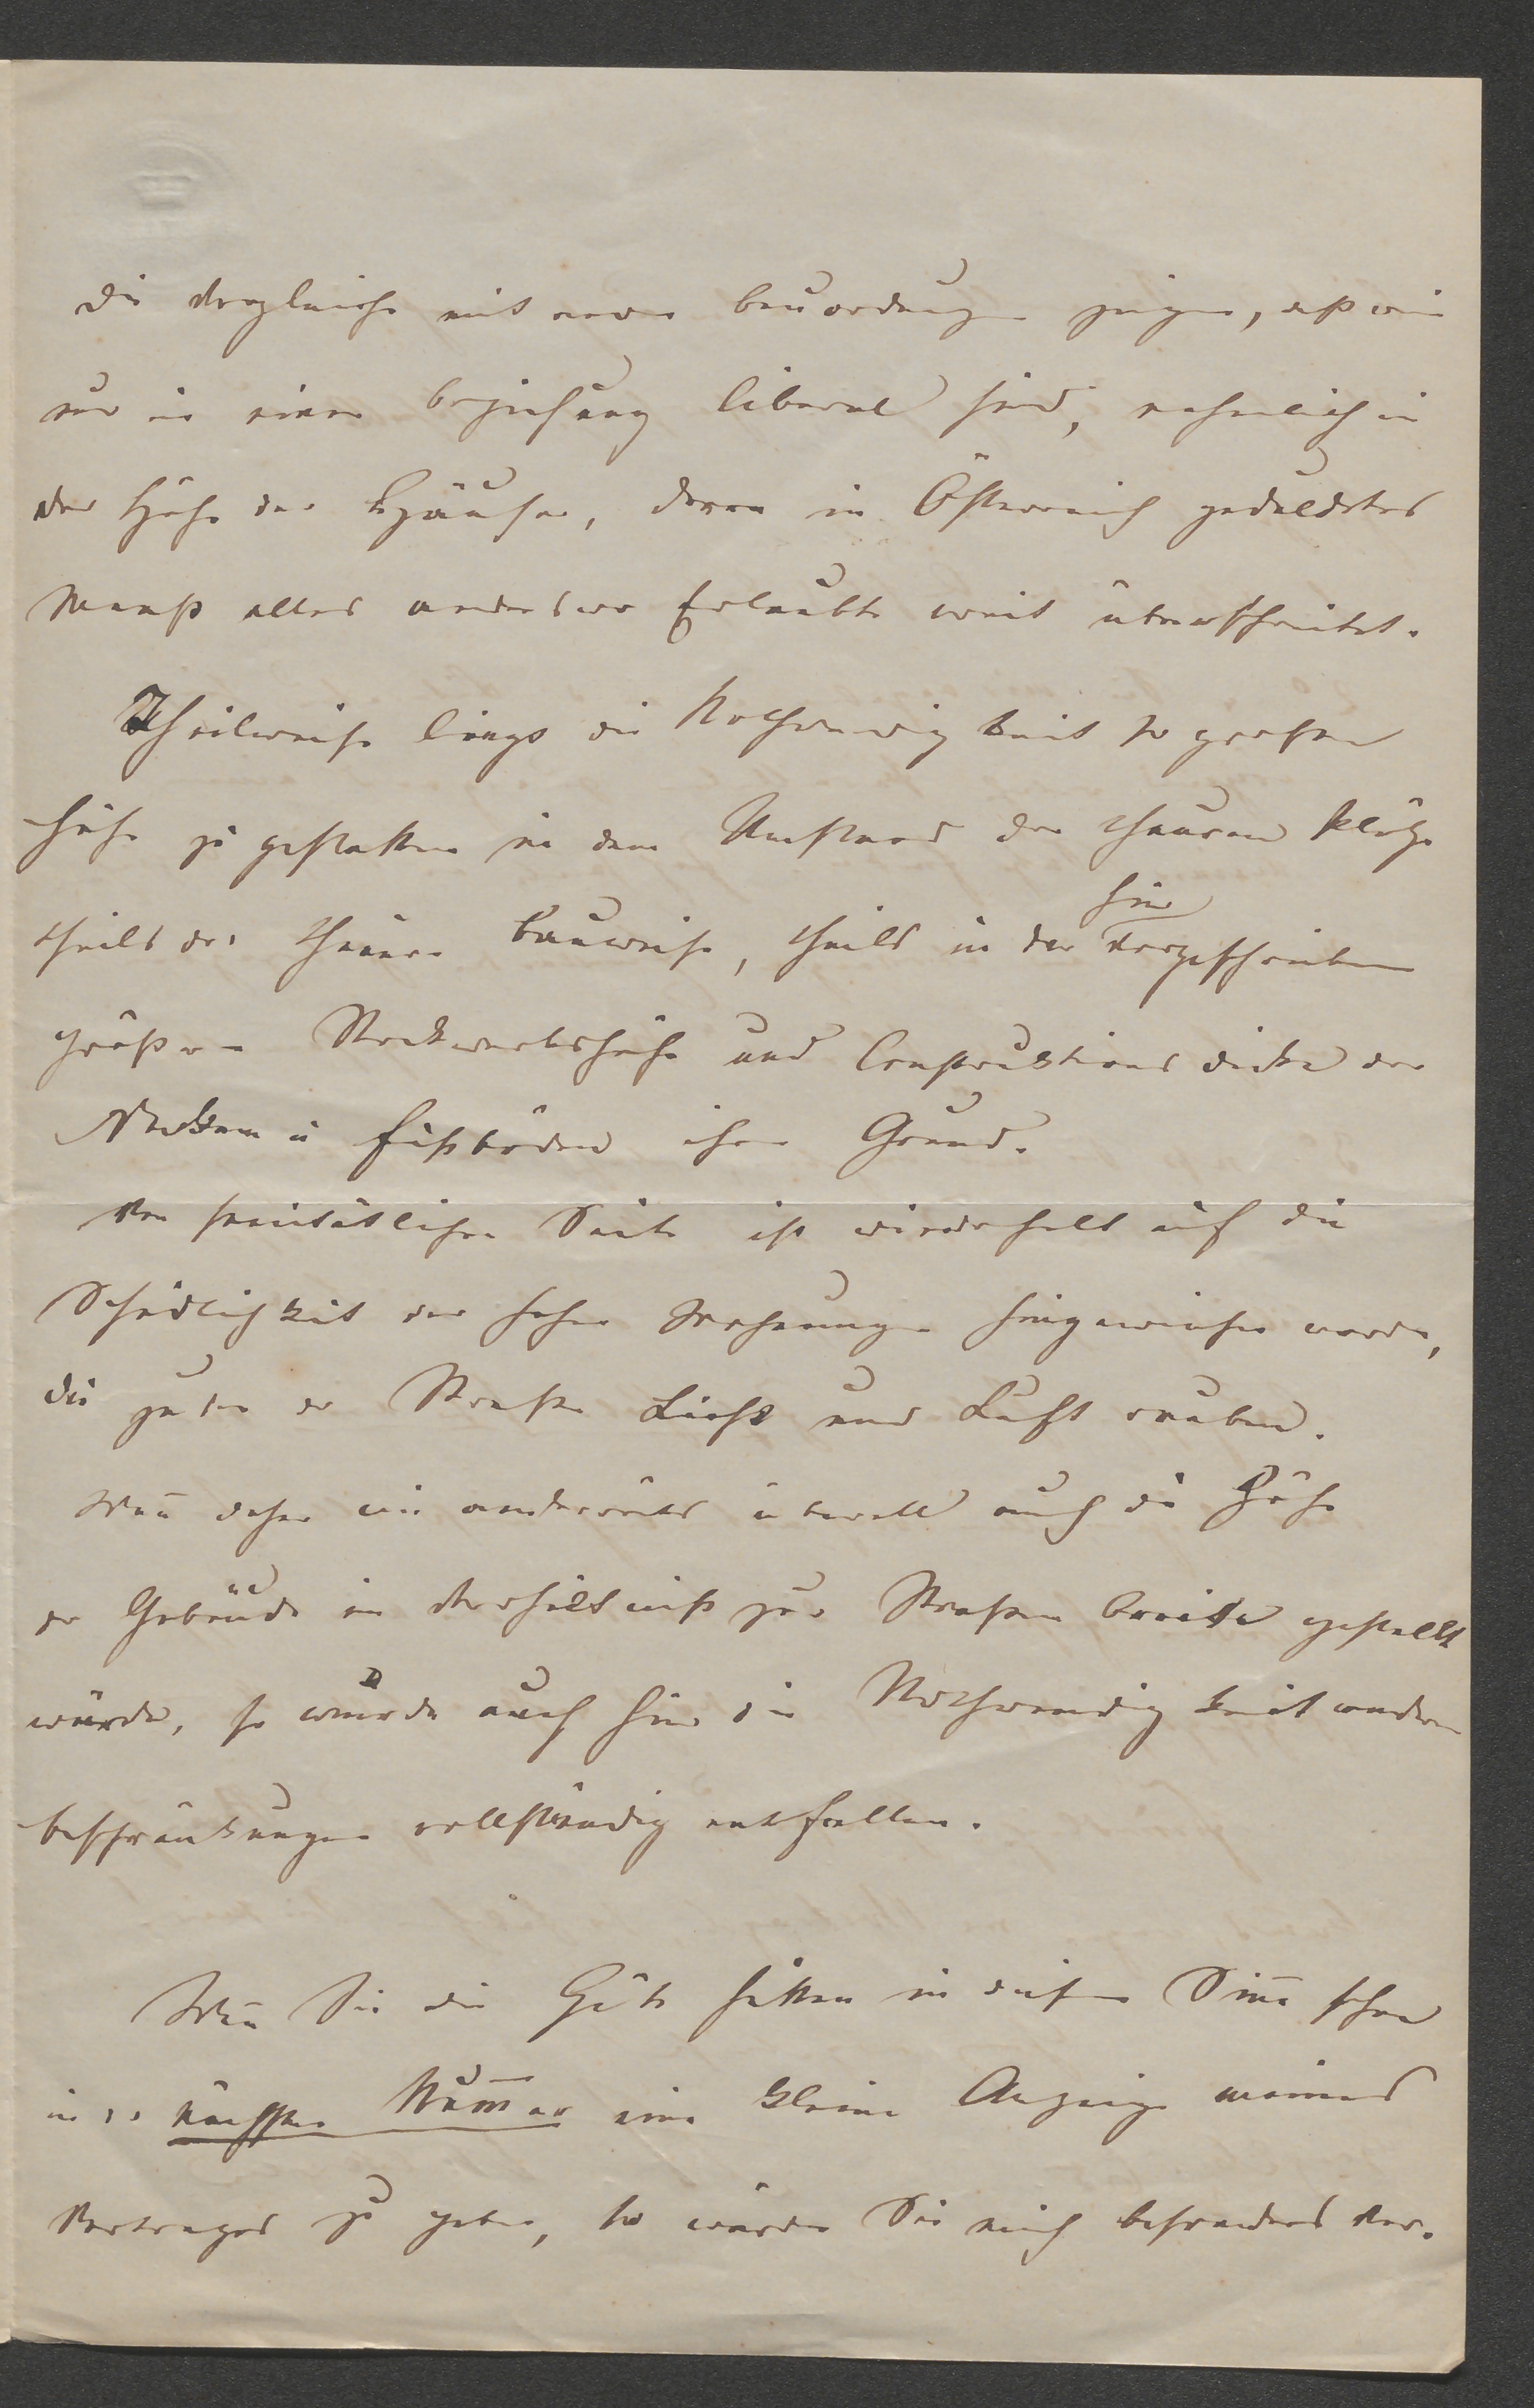 Die Vergleiche mit andern Bauordnungen zeigen, daß wir
nur in einer Beziehung liberal sind, nahmlich in
der Höhe der Häuser, deren in Österreich geduldetes
Maaß alles anderswo Erlaubte weit überschreitet.
Theilweise liegt die Nothwendigkeit so großen
Höhe zu gestatten in dem Umstand der theuren Plätze
theils der theuren Bauweise, theils in der
hier
vorgeschriebenen
größeren Stockwerkshöhe und Construktionsdicke der
Decken u Fußböden ihren Grund.
Von sanitätlicher Seite ist wiederholt auf die
Schädlichkeit der hohen Wohnungen hingewiesen worden,
die zudem der Straße Licht und Luft rauben.
Wenn̄ daher wie anderwärts überall auch die Höhe
der Gebäude in Verhältniß zur Straßenbreite gestellt
würde, so würde auch hier die Nothwendigkeit anderer
Beschränkungen vollständig entfallen.
Wen̄ Sie die Güte hätten in diesem Sin̄e schon
in der nächsten Num̄er eine kleine Anzeige meines
Vortrages zu geben, so würden Sie mich besonders ver-